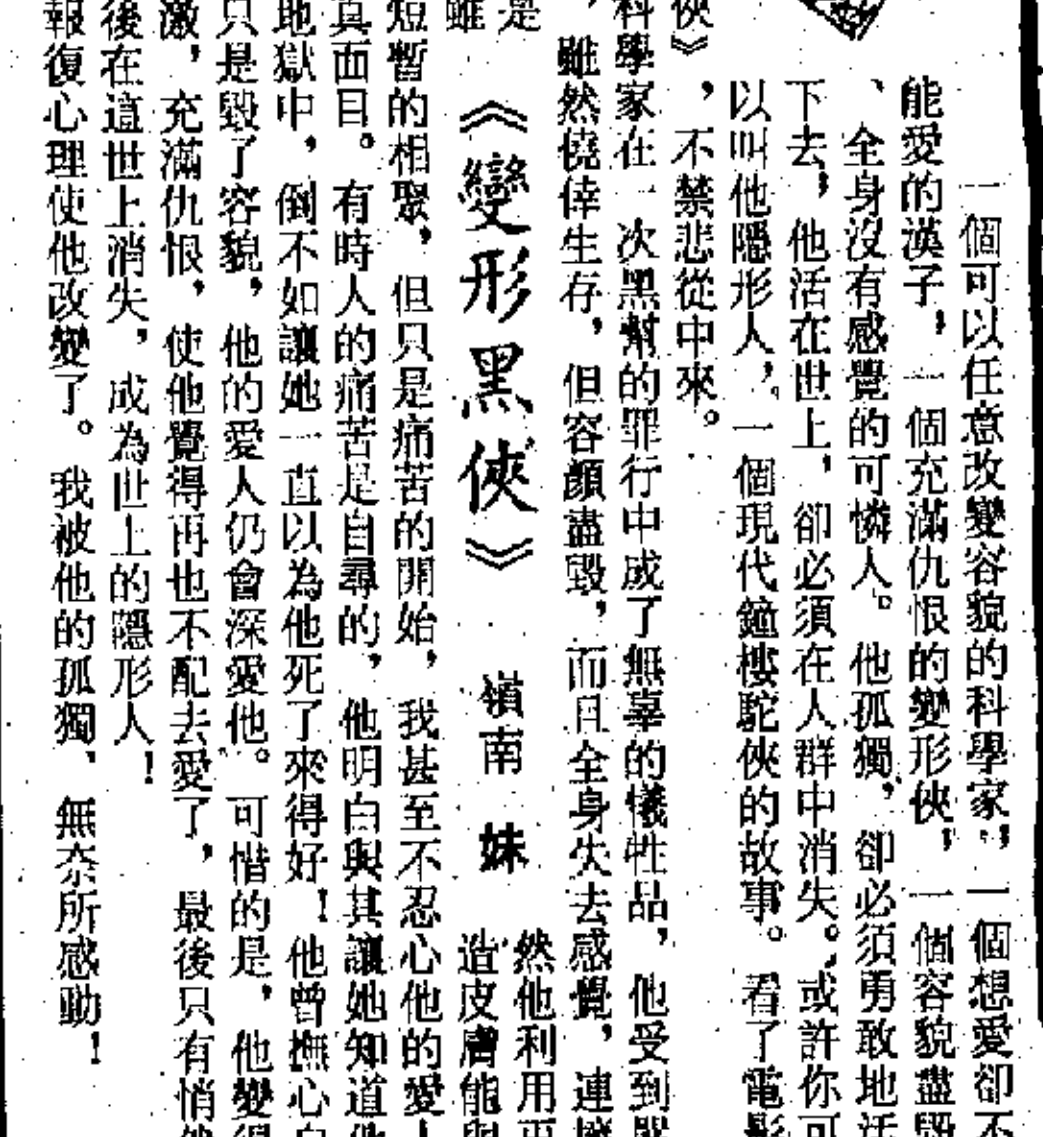 一個可以任意改變容貌的科學家，一個想愛卻不
能愛的漢子，一個充滿仇恨的變形俠，一個容貌盡毀
、全身沒有感覺的可憐人。他孤獨，卻必須勇敢地活
下去，他活在世上，卻必須在人群中消失。或許你可
以叫他隱形人，。一個現代鐘樓駝俠的故事。看了電影
俠》，不禁悲從中來。
科學家在一次黑幫的罪行中成了無辜的犧牲品，他受到
，雖然僥倖生存，但容顏盡毀，而且全身失去感覺，連
是
然他利用
雖
造皮膚能與
《變形黑俠》
嶺南 妹
短暫的相聚，但只是痛苦的開始，我甚至不忍心他的愛人
真面目。有時人的痛苦是自尋的，他明白與其讓她知道他
地獄中，倒不如讓她一直以為他死了來得好！他曾撫心自
只是毀了容貌，他的愛人仍會深愛他。可惜的是，他變得
激，充滿仇恨，使他覺得再也不配去愛了，最後只有悄然
後在這世上消失，成為世上的隱形人！
報復心理使他改變了。我被他的孤獨、無奈所感動！